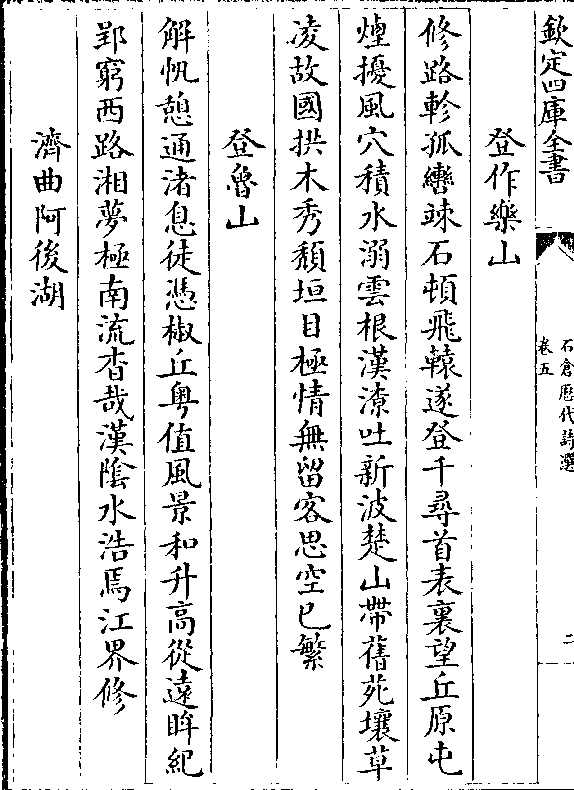 欽定四庫全書
石倉歷代詩選
卷五
二
登作樂山
修路軫孤轡竦石頓飛轅遂登千尋首表裏望丘原屯
煙擾風穴積水溺雲根漢潦吐新波楚山帶舊苑壤草
凌故國拱木秀頹垣目極情無留客思空已繁
登魯山
解帆憩通渚息徒憑椒丘粤值風景和升高從遠眸紀
郢窮西路湘夢極南流杳哉漢陰水浩焉江界修
濟曲阿後湖